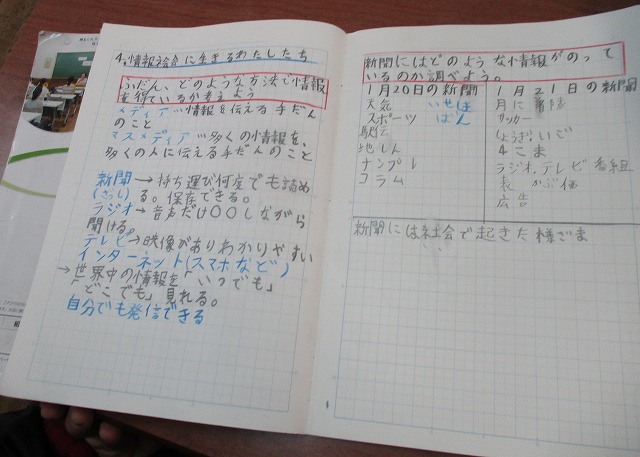 4.情報社会に生きるわたしたち
ふだん、どのような方法で情報
を得ているか考えよう
メディア…情報を伝える手だん
のこと
マスメディア…多くの情報を、
多くの人に伝える手だんのこと
新聞→持ち運び何度でも読め
(ざっし)る。保存できる。
ラジオ→音声だけ○○しながら
聞ける。
テレビ→映像がありわかりやすい
インターネット(スマホなど)
→世界中の情報を「いつでも」
「どこでも」見れる。
自分でも発信できる
新聞にはどのような情報がのって
いるのか調べよう。
1月20日の新聞
天気 いせほ
スポーツ ばん
駅伝
地しん
ナンプレ
コラム
1月21日の新聞
月に
サッカー
4こま
ラジオ,テレビ番組
表 かぶ価
広告
新聞には社会で起きた様ざま